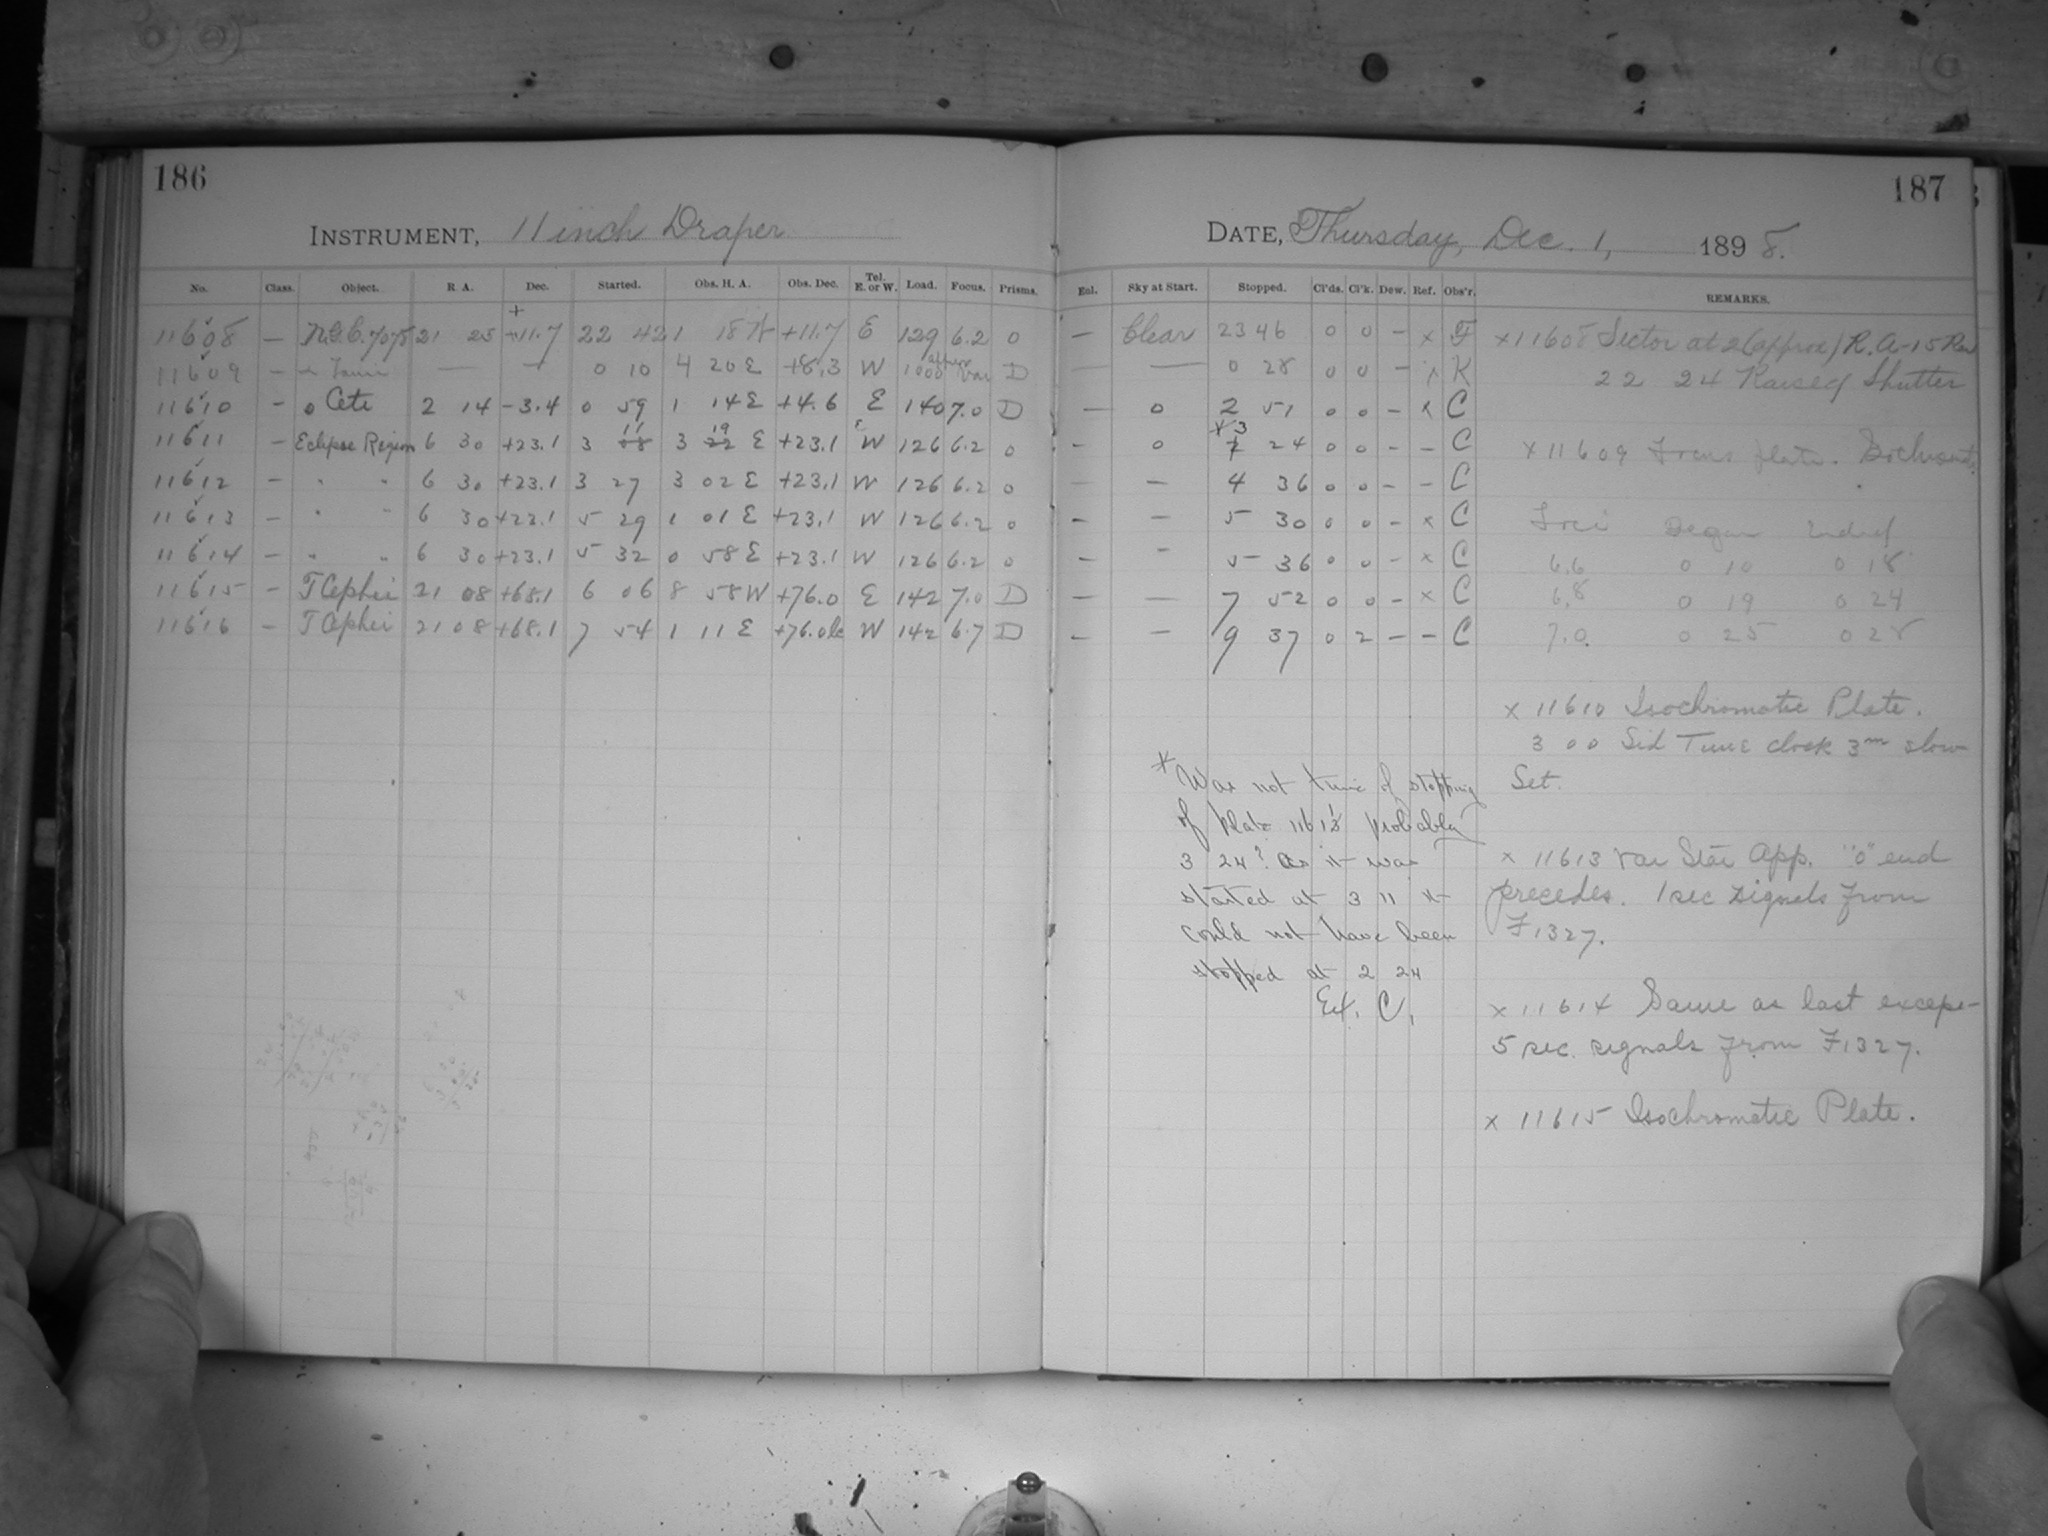 186
INSTRUMENT, 11 inch Draper
No. Class. Object. R. A. Dec. Started. Obs. H. A. Obs. Dec. Tel. E. or W. Load. Focus. Prisms.
11608 — N.G.C. 7078 21 25 +11.7 22 42 1 18 W +11.7 E 129 6.2 0
11609 — — — 0 10 4 20 E +8.3 W 1000 approx Var D
11610 — o Ceti 2 14 -3.4 0 59 1 14 E +4.6 E 140 7.0 D
11611 — Eclipse Region 6 30 +23.1 3 08 11 3 22 19 E +23.1 W 126 6.2 0
11612 — " " 6 30 +23.1 3 27 3 02 E +23.1 W 126 6.2 0
11613 — " " 6 30 +23.1 5 29 1 01 E +23.1 W 126 6.2 0
11614 — " " 6 30 +23.1 5 32 0 58 E +23.1 W 126 6.2 0
11615 — T Cephei 21 08 +68.1 6 06 8 58 W +76.0 E 142 7.0 D
11616 — T Cephei 21 08 +68.1 7 54 1 11 E +76.0 W 142 6.7 D
187
DATE, Thursday, Dec. 1, 1898.
Enl. Sky at Start. Stopped. Cl'ds. Cl'k. Dew. Ref. Obs'r. REMARKS.
— Clear 23 46 0 0 — x F
— — 0 28 0 0 — x K
— 0 2 51 0 0 — x C
— 0 x 3 24 0 0 — — C
— — 4 36 0 0 — — C
— — 5 30 0 0 — x C
— — 5 36 0 0 — x C
— — 7 52 0 0 — x C
— — 9 37 0 2 — — C
x 11608 Sector at 2 (approx) R.A-15 Rev
22 24 Raised Shutter
x 11609 Focus plate. Isochromat.
Foci Began Ended
6.6 0 10 0 18
6.8 0 19 0 24
7.0 0 25 0 28
x 11610 Isochromatic Plate.
3 00 Sid Time clock 3m slow
Set.
x 11613 Var Star App. "0" end
precedes. 1 sec signals from
F1327.
x 11614 Same as last except
5 sec. signals from F1327.
x 11615 Isochromatic Plate.
* Was not time of stopping
of plate 11611 probably
3 24? as it was
started at 3 11 it
could not have been
stopped at 2 24
Ed. C.